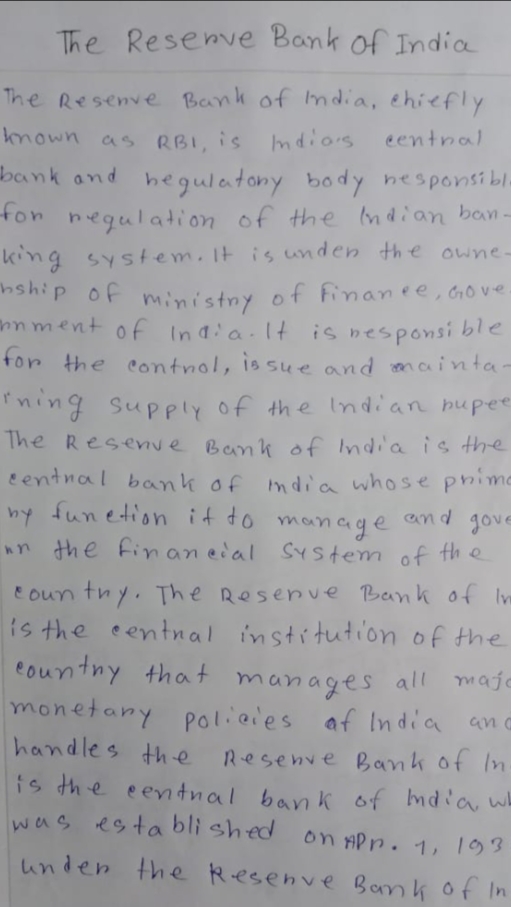 The Reserve Bank Of India
The Reserve Bank of India, chiefly
known as RBI, is India's central
bank and regulatory body responsibl
for regulation of the Indian ban-
king system. It is under the owne-
rship of ministry of Finance, Gove
rnment of India. It is responsible
for the control, issue and mainta-
ining supply of the Indian rupee
The Reserve Bank of India is the
central bank of India whose prima
ry function it to manage and gove
rn the financial system of the
country. The Reserve Bank of In
is the central institution of the
country that manages all majo
monetary policies of India and
handles the Reserve Bank of In
is the central bank of India, wh
was established on Apr. 1, 193
under the Reserve Bank of In